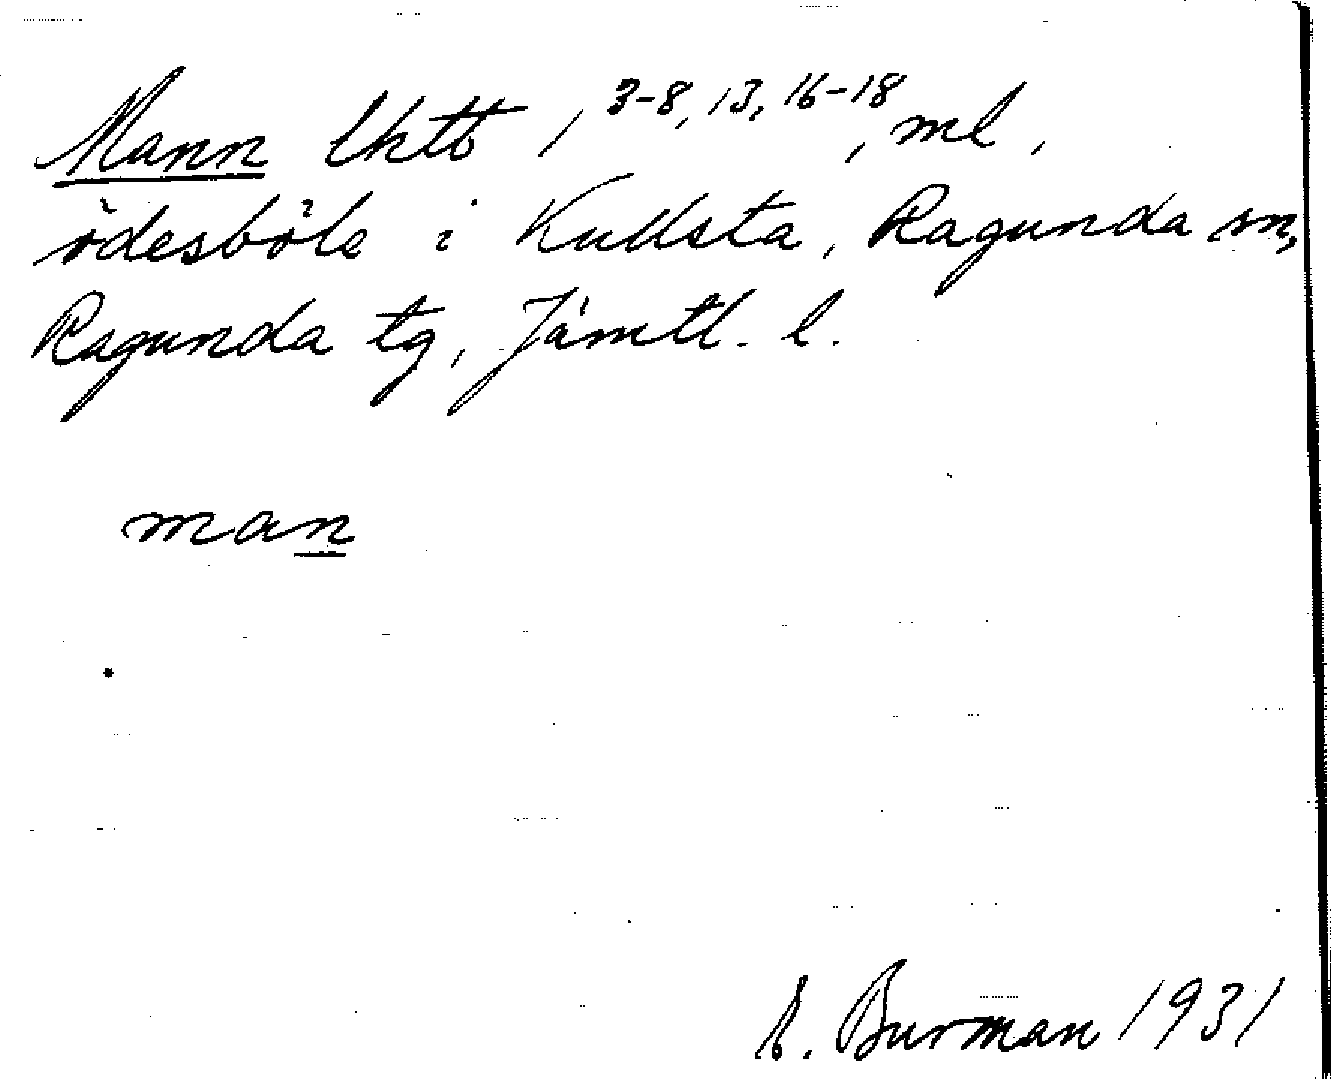 Mann lktb 1 3-8, 13, 16-18, ml,
ödesböle i Kullsta, Ragunda sn,
Ragunda tg, Jämtl. l.
man
E. Burman 1931